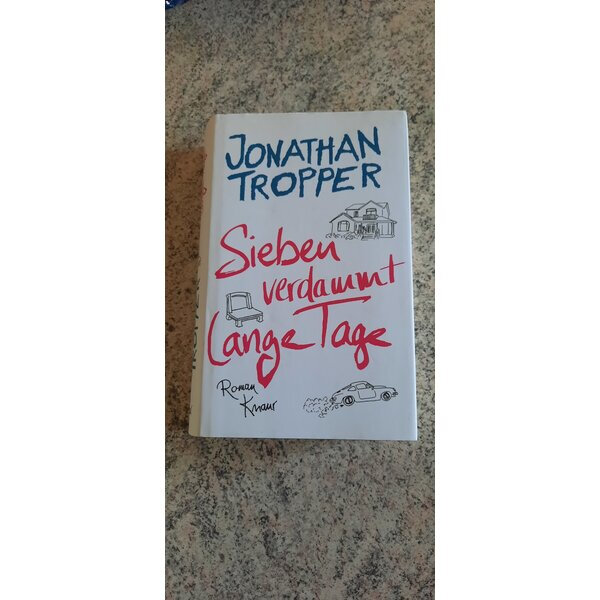 JONATHAN
TROPPER
Sieben
verdammt
Lange Tage
Roman
Knaur